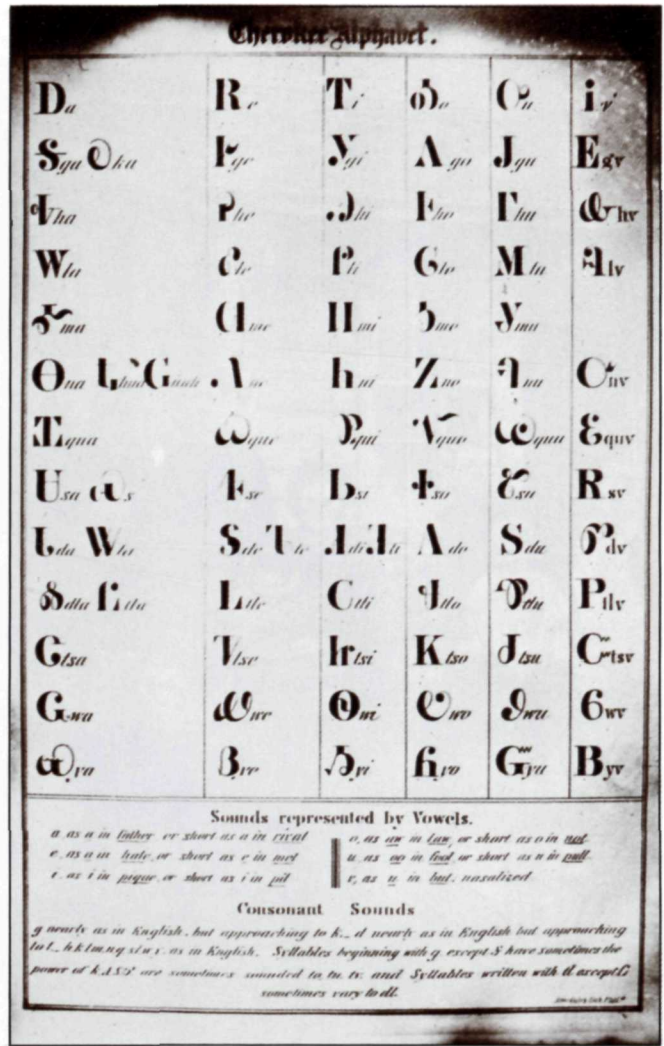 Cherokee Alphabet.
Ꭰa Ꭱe Ꭲi Ꭳo Ꭴu Ꭵv
Ꭶga Ꭷka Ꭸge Ꭹgi Ꭺgo Ꭻgu Ꭼgv
Ꭽha Ꭾhe Ꭿhi Ꮀho Ꮁhu Ꮂhv
Ꮃla Ꮄle Ꮅli Ꮆlo Ꮇlu Ꮈlv
Ꮉma Ꮊme Ꮋmi Ꮌmo Ꮍmu
Ꮎna Ꮏhna Ꮐnah Ꮑne Ꮒni Ꮓno Ꮔnu Ꮕnv
Ꮖqua Ꮗque Ꮘqui Ꮙquo Ꮚquu Ꮛquv
Ꮜsa Ꮝs Ꮞse Ꮟsi Ꮠso Ꮡsu Ꮢsv
Ꮣda Ꮤta Ꮥde Ꮦte Ꮧdi Ꮨti Ꮩdo Ꮪdu Ꮫdv
Ꮬdla Ꮭtla Ꮮtle Ꮯtli Ꮰtlo Ꮱtlu Ꮲtlv
Ꮳtsa Ꮴtse Ꮵtsi Ꮶtso Ꮷtsu Ꮸtsv
Ꮹwa Ꮺwe Ꮻwi Ꮼwo Ꮽwu Ꮾwv
Ꮿya Ᏸye Ᏹyi Ᏺyo Ᏻyu Ᏼyv
Sounds represented by Vowels.
a, as a in father, or short as a in rival
e, as a in hate, or short as e in met
i, as i in pique, or short as i in pit
o, as aw in law, or short as o in not.
u, as oo in fool, or short as u in pull.
v, as u in but, nasalized.
Consonant Sounds
g nearly as in English, but approaching to k._ d nearly as in English but approaching
to t._ h.k.l.m.n.q.s.t.w.y. as in English. Syllables beginning with g. except Ꭶ have sometimes the
power of k. Ꮩ.Ꮪ.Ꮫ are sometimes sounded to, tu, tv. and Syllables written with tl. except Ꮭ
sometimes vary to dl.